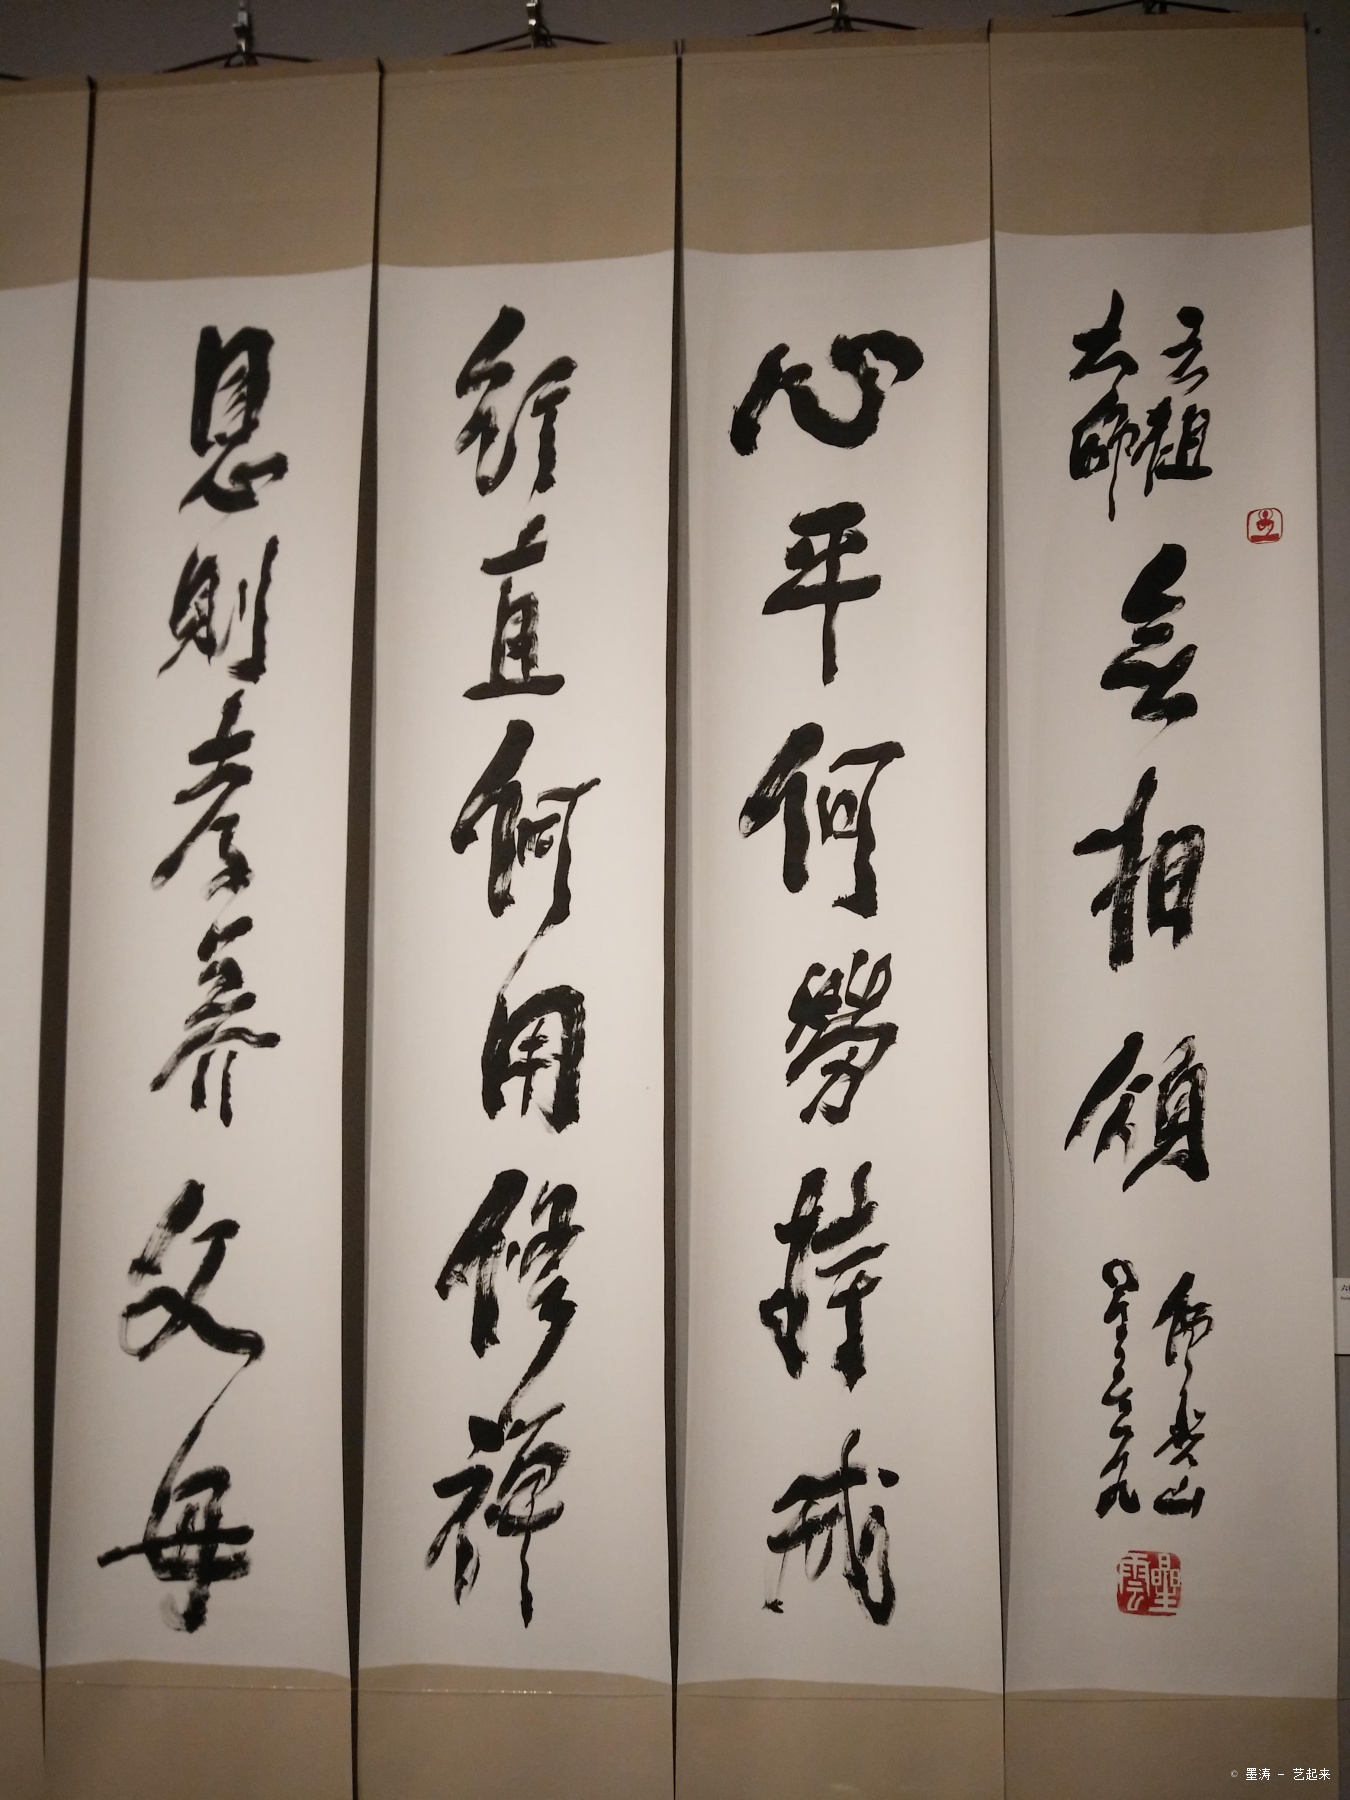 六祖
大師
無相頌
佛光山
星雲
心平何勞持戒
行直何用修禪
恩則孝養父母
© 墨涛 - 艺起来